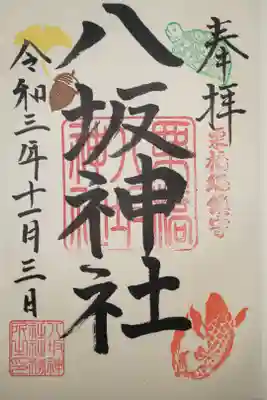 奉拝
八坂神社
令和三年十一月三日